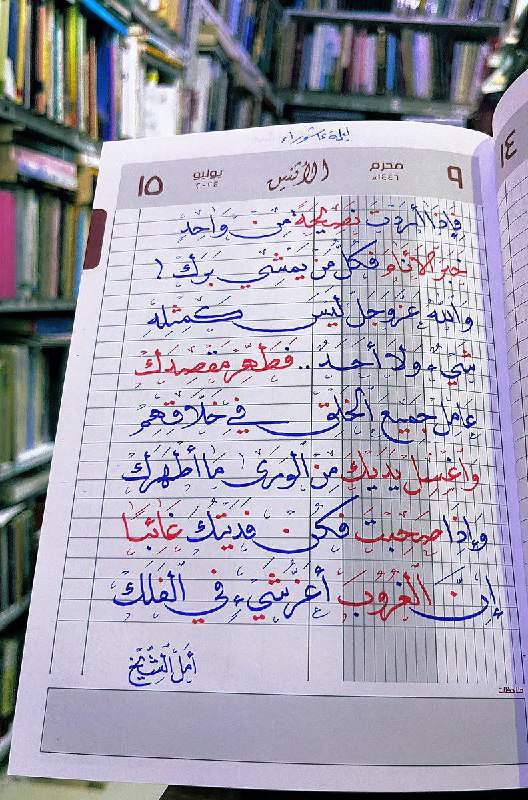 ليلة عاشوراء
٩ محرم ١٤٤٦هـ الاثنين يوليو ٢٠٢٤ ١٥
١٤
فَإِذَا أَرَدْتَ نَصِيْحَةً مِنْ وَاحِدٍ
خَبَرَ الأَنَامَ فَكُلُّ مَنْ يَمْشِي بَرَكْ !
وَاللهُ عَزَّ وَجَلَّ لَيْسَ كَمِثْلِهِ
شَيْءٌ وَلَا أَحَدٌ .. فَطَهِّرْ مَقْصِدَكْ
عَامِلْ جَمِيْعَ الخَلْقِ فِي خَلَّاقِهِمْ
وَاغْسِلْ يَدَيْكَ مِنَ الْوَرَى مَا أَطْهَرَكْ
وَإِذَا صَحِبْتَ فَكُنْ فَدَيْتُكَ غَائِبًا
إِنَّ الْغُرُوبَ أَعَزُّ شَيْءٍ فِي الْفَلَكْ
أَمَل الشَّيْخ
ملاحظات